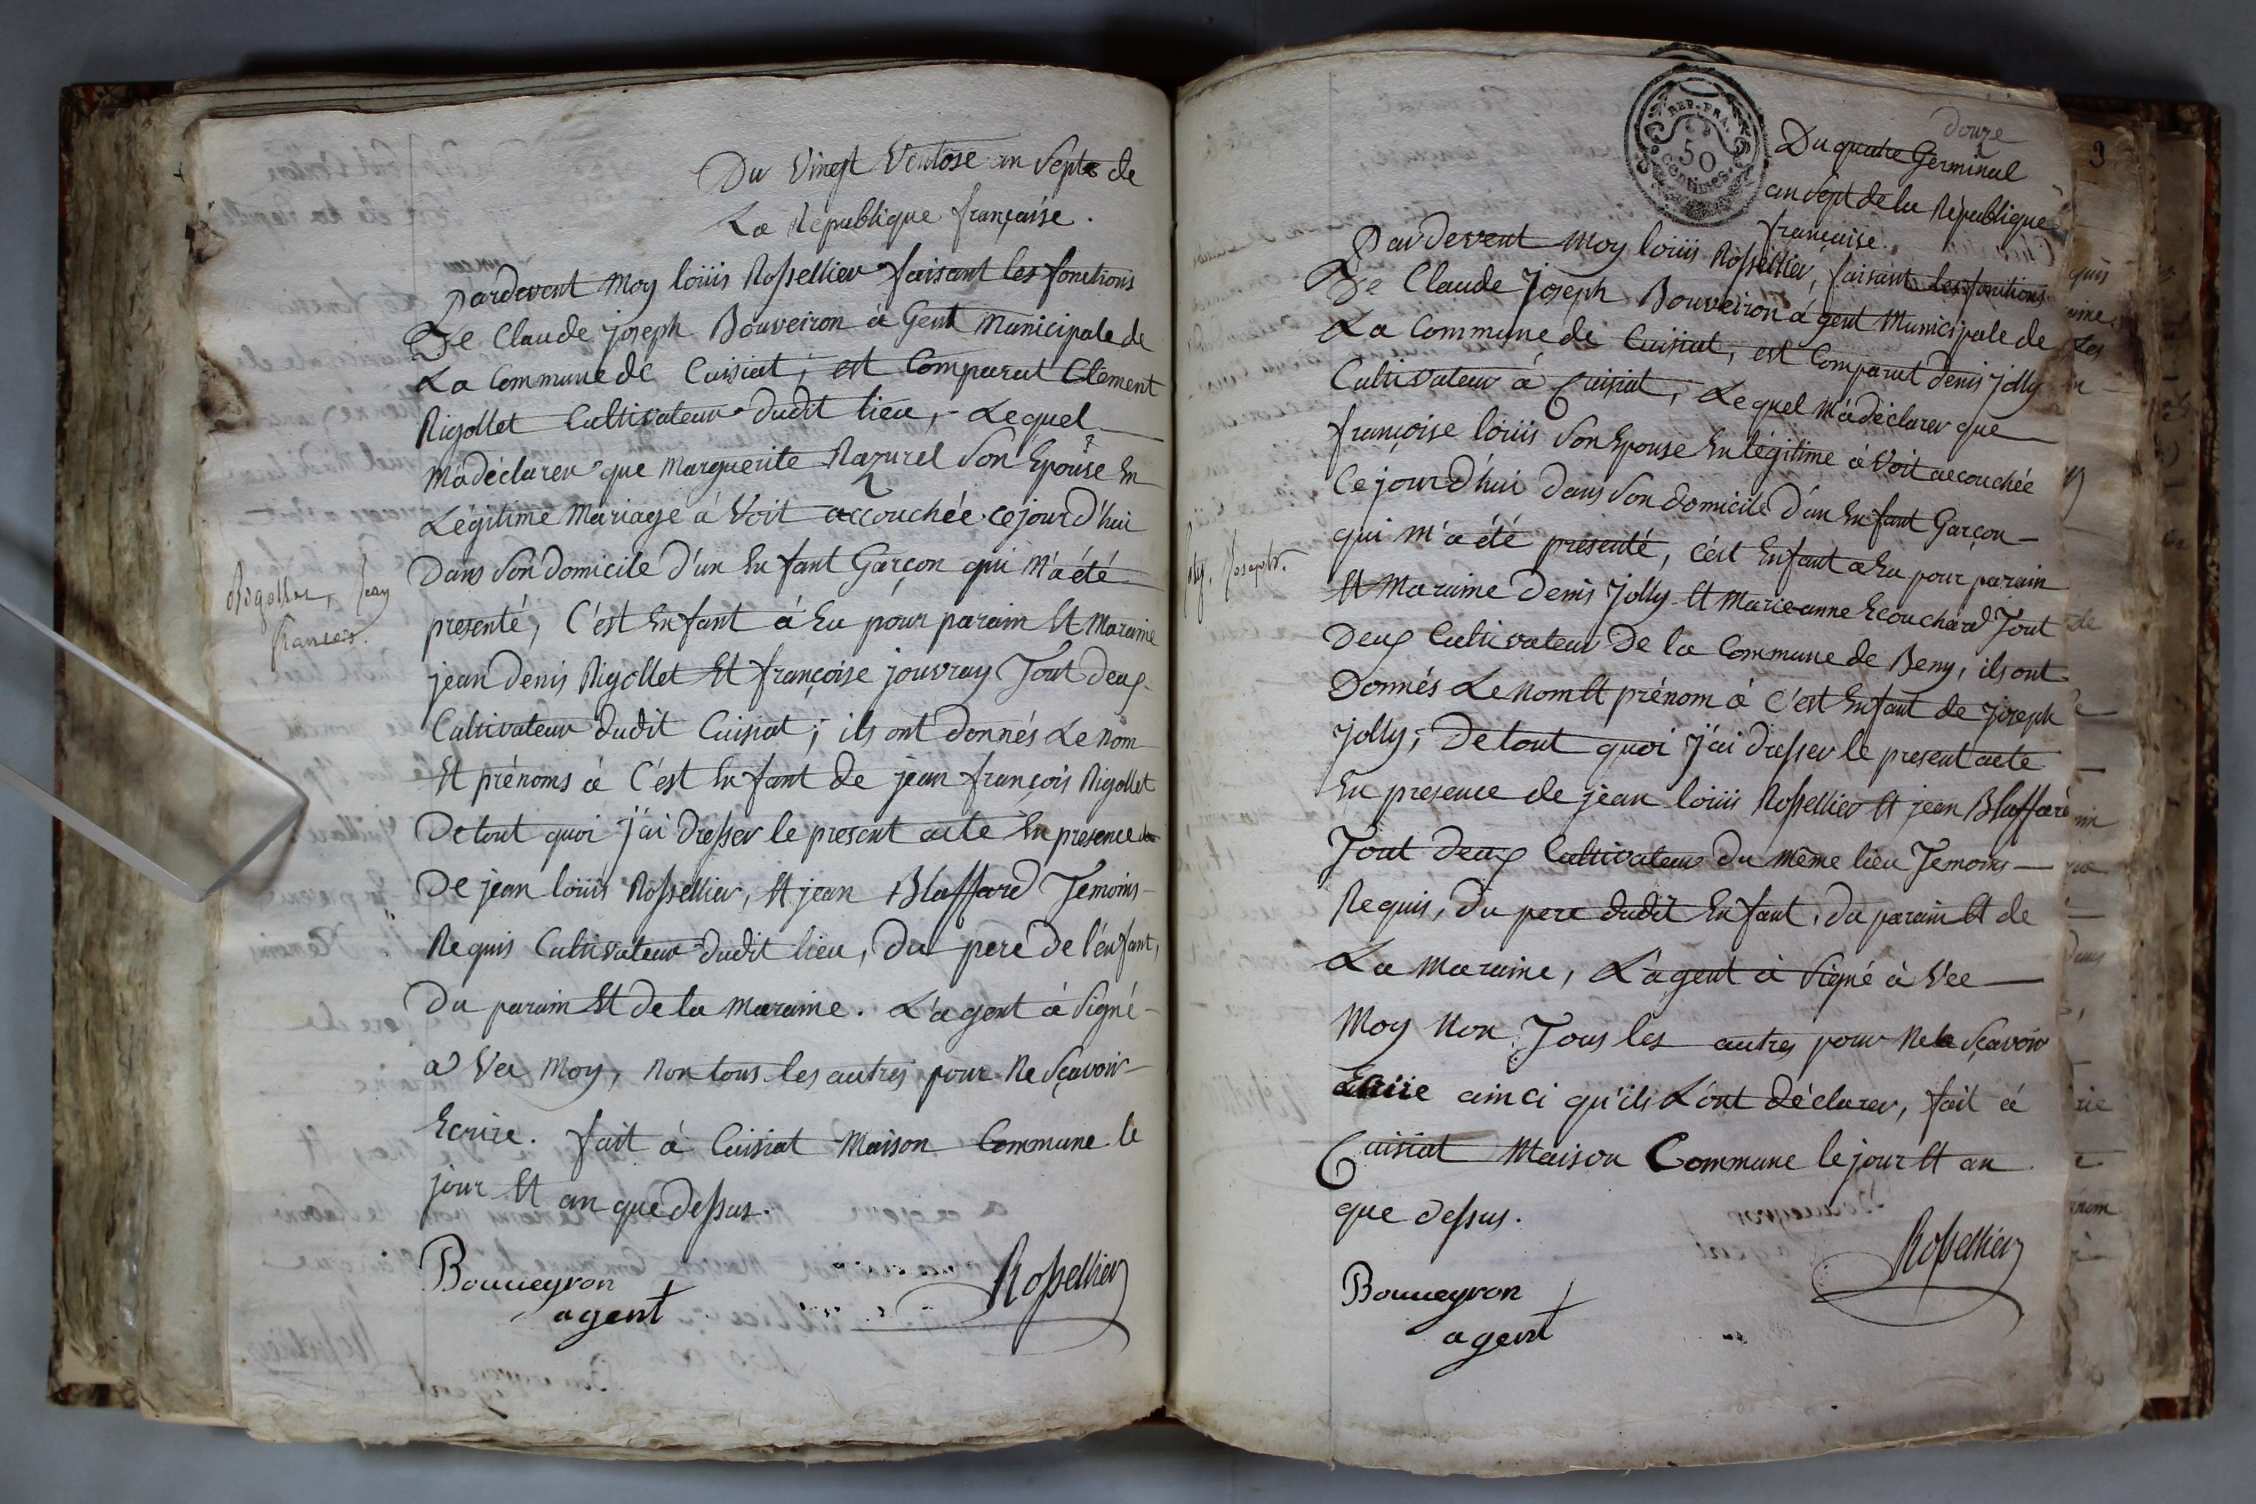 Du vingt Ventose an Septe de
La République française.
Pardevent Moy loüis Rossellier faisant les fonctions
De Claude joseph Bouveiron à Gent Municipale de
La Commune de Cuisiat, est Comparut Clement
Rigollet Cultivateur dudit lieu, Lequel
M'adéclarer que Marguerite Nazurel Son Epouse En
Légitime Mariage à Voit accouchée cejourd'hui
Dans Son domicile d'un Enfant Garçon qui M'a été
presenté, C'ést Enfant à Eu pour parain Et Maraine
jean Denis Rigollet Et françoise jouvray Tout deux
Cultivateur dudit Cuisiat; ils ont donnés Le nom
Et prénoms à C'ést Enfant de jean françois Rigollet
De tout quoi j'ai dresser le present acte En presence
De jean loüis Rossellier, Et jean Blaffard Temoins
Requis Cultivateur dudit lieu, Du peré de l'énfant,
Du parain Et de la Maraine. L'agent à Signé
a Vec Moy, Non tous les autres pour Ne Sçavoir
Ecrire. fait à Cuisiat Maison Commune le
jour Et an que dessus.
Bouueyron
agent
Rossellier
Rigollet, Jean
francois.
50
Centimes
3
douze
Du quatre Germinal
an Sept de la République
française.
Pardevent Moy loüis Rossellier, faisant les fonctions
De Claude Joseph Bouveiron à gent Municipale de
La Commune de Cuisiat, est Comparut denis jolly
Cultivateur à Cuisiat, Lequel M'adéclarer que
françoise loüis Son Epouse En légitime à Voit accouchée
Ce jourd'hui dans Son domicile d'un Enfant Garçon
qui M'a été presenté, C'ést Enfant a Eu pour parain
Et Maraine Denis Jolly Et Marieanne Ecouchard Tout
Deux Cultivateur De la Commune de Beny, ils ont
Donnés Le Nom Et prénom à C'ést Enfant de joseph
jolly; De tout quoi j'ai dresser le present acte
En presence de jean loüis Rossellier Et jean Blaffard
Tout deux Cultivateur du même lieu Temoins
Requis, du pere dudit Enfant, du parain Et de
La Maraine, L'agent à Signé à Vec
Moy Non Tous les autres pour Ne Sçavoir
Ecrire ainci qu'ils L'ont déclarer, fait à
Cuisiat Maison Commune le jour Et an
que dessus.
Bouueyron
agent
Rossellier
Joseph.